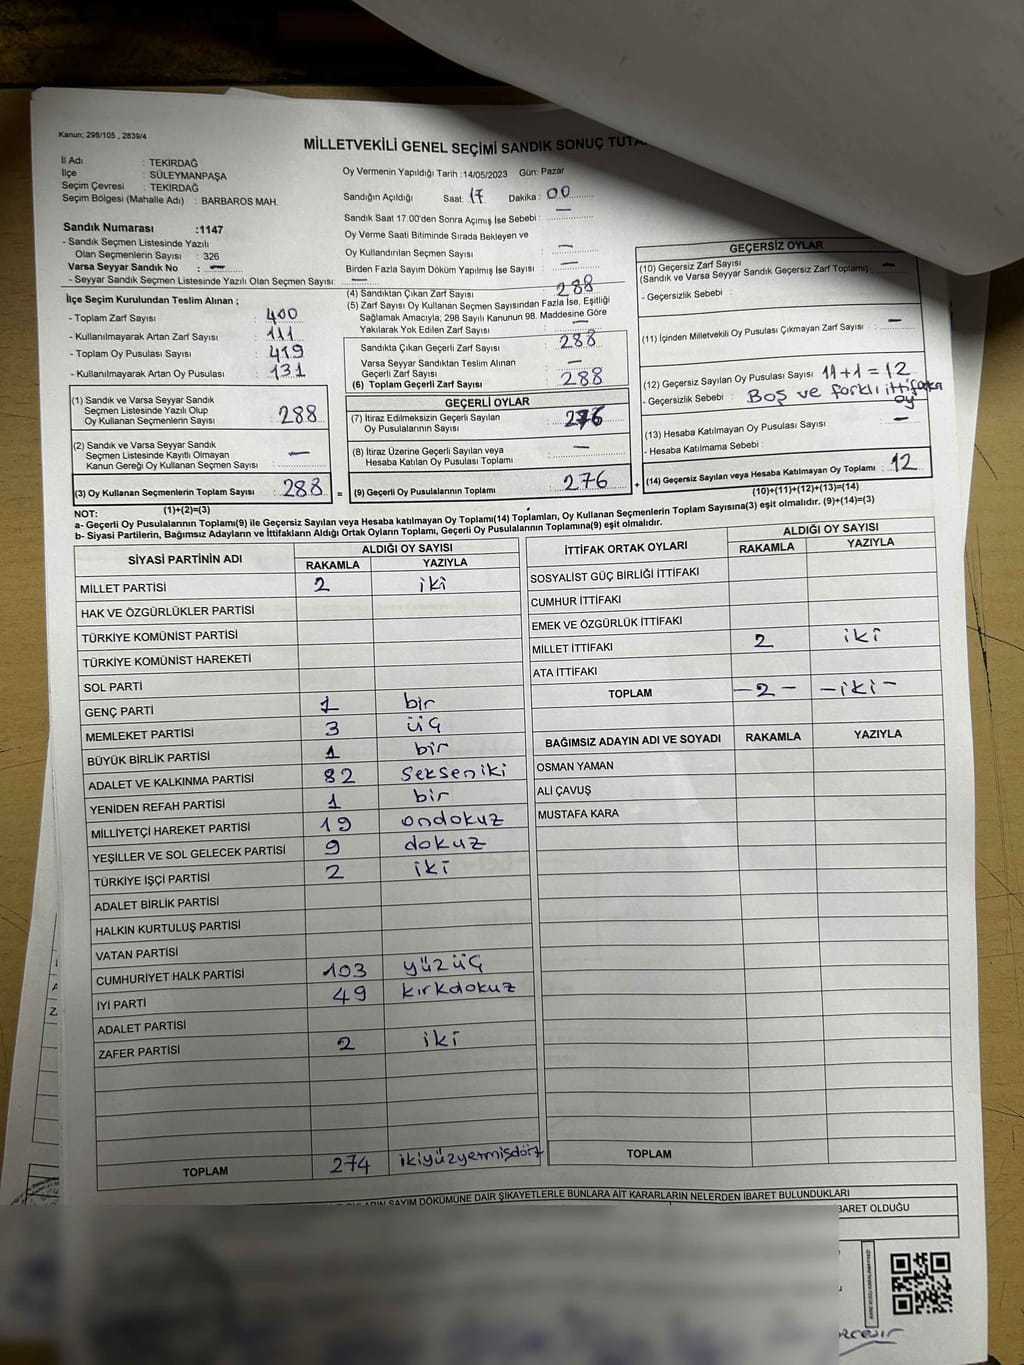 Kanun; 298/105 , 2839/4
MİLLETVEKİLİ GENEL SEÇİMİ SANDIK SONUÇ
İl Adı : TEKİRDAĞ
İlçe : SÜLEYMANPAŞA
Seçim Çevresi : TEKİRDAĞ
Seçim Bölgesi (Mahalle Adı) : BARBAROS MAH.
Sandık Numarası :1147
- Sandık Seçmen Listesinde Yazılı
Olan Seçmenlerin Sayısı : 326
Varsa Seyyar Sandık No : —
- Seyyar Sandık Seçmen Listesinde Yazılı Olan Seçmen Sayısı: —
Oy Vermenin Yapıldığı Tarih :14/05/2023 Gün: Pazar
Sandığın Açıldığı Saat: 17 Dakika : 00
Sandık Saat 17:00'den Sonra Açımış İse Sebebi : —
Oy Verme Saati Bitiminde Sırada Bekleyen ve
Oy Kullandırılan Seçmen Sayısı : —
Birden Fazla Sayım Döküm Yapılmış İse Sayısı : —
İlçe Seçim Kurulundan Teslim Alınan ;
- Toplam Zarf Sayısı : 400
- Kullanılmayarak Artan Zarf Sayısı : 111
- Toplam Oy Pusulası Sayısı : 419
- Kullanılmayarak Artan Oy Pusulası : 131
(1) Sandık ve Varsa Seyyar Sandık
Seçmen Listesinde Yazılı Olup
Oy Kullanan Seçmenlerin Sayısı : 288
(2) Sandık ve Varsa Seyyar Sandık
Seçmen Listesinde Kayıtlı Olmayan
Kanun Gereği Oy Kullanan Seçmen Sayısı : —
(3) Oy Kullanan Seçmenlerin Toplam Sayısı : 288
(1)+(2)=(3)
(4) Sandıktan Çıkan Zarf Sayısı : 288
(5) Zarf Sayısı Oy Kullanan Seçmen Sayısından Fazla İse, Eşitliği
Sağlamak Amacıyla, 298 Sayılı Kanunun 98. Maddesine Göre
Yakılarak Yok Edilen Zarf Sayısı : —
Sandıkta Çıkan Geçerli Zarf Sayısı : 288
Varsa Seyyar Sandıktan Teslim Alınan
Geçerli Zarf Sayısı : —
(6) Toplam Geçerli Zarf Sayısı : 288
GEÇERLİ OYLAR
(7) İtiraz Edilmeksizin Geçerli Sayılan
Oy Pusulalarının Sayısı : 276
(8) İtiraz Üzerine Geçerli Sayılan veya
Hesaba Katılan Oy Pusulası Toplamı : —
= (9) Geçerli Oy Pusulalarının Toplamı : 276
GEÇERSİZ OYLAR
(10) Geçersiz Zarf Sayısı : —
(Sandık ve Varsa Seyyar Sandık Geçersiz Zarf Toplamı)
- Geçersizlik Sebebi :
(11) İçinden Milletvekili Oy Pusulası Çıkmayan Zarf Sayısı : —
(12) Geçersiz Sayılan Oy Pusulası Sayısı 11+1=12
- Geçersizlik Sebebi : Boş ve farklı ittifaka
oy
(13) Hesaba Katılmayan Oy Pusulası Sayısı : —
- Hesaba Katılmama Sebebi :
+ (14) Geçersiz Sayılan veya Hesaba Katılmayan Oy Toplamı : 12
(10)+(11)+(12)+(13)=(14)
NOT:
a- Geçerli Oy Pusulalarının Toplamı(9) ile Geçersiz Sayılan veya Hesaba katılmayan Oy Toplamı(14) Toplamları, Oy Kullanan Seçmenlerin Toplam Sayısına(3) eşit olmalıdır. (9)+(14)=(3)
b- Siyasi Partilerin, Bağımsız Adayların ve İttifakların Aldığı Ortak Oyların Toplamı, Geçerli Oy Pusulalarının Toplamına(9) eşit olmalıdır.
SİYASİ PARTİNİN ADI ALDIĞI OY SAYISI
RAKAMLA YAZIYLA
MİLLET PARTİSİ 2 iki
HAK VE ÖZGÜRLÜKLER PARTİSİ
TÜRKİYE KOMÜNİST PARTİSİ
TÜRKİYE KOMÜNİST HAREKETİ
SOL PARTİ
GENÇ PARTİ 1 bir
MEMLEKET PARTİSİ 3 üç
BÜYÜK BİRLİK PARTİSİ 1 bir
ADALET VE KALKINMA PARTİSİ 82 Sekseniki
YENİDEN REFAH PARTİSİ 1 bir
MİLLİYETÇİ HAREKET PARTİSİ 19 ondokuz
YEŞİLLER VE SOL GELECEK PARTİSİ 9 dokuz
TÜRKİYE İŞÇİ PARTİSİ 2 iki
ADALET BİRLİK PARTİSİ
HALKIN KURTULUŞ PARTİSİ
VATAN PARTİSİ
CUMHURİYET HALK PARTİSİ 103 yüzüç
İYİ PARTİ 49 kırkdokuz
ADALET PARTİSİ
ZAFER PARTİSİ 2 iki
TOPLAM 274 ikiyüzyetmişdört
İTTİFAK ORTAK OYLARI ALDIĞI OY SAYISI
RAKAMLA YAZIYLA
SOSYALİST GÜÇ BİRLİĞİ İTTİFAKI
CUMHUR İTTİFAKI
EMEK VE ÖZGÜRLÜK İTTİFAKI
MİLLET İTTİFAKI 2 iki
ATA İTTİFAKI
TOPLAM -2- -iki-
BAĞIMSIZ ADAYIN ADI VE SOYADI RAKAMLA YAZIYLA
OSMAN YAMAN
ALİ ÇAVUŞ
MUSTAFA KARA
TOPLAM
SAYIM DÖKÜMÜNE DAİR ŞİKAYETLERLE BUNLARA AİT KARARLARIN NELERDEN İBARET BULUNDUKLARI
OLDUĞU